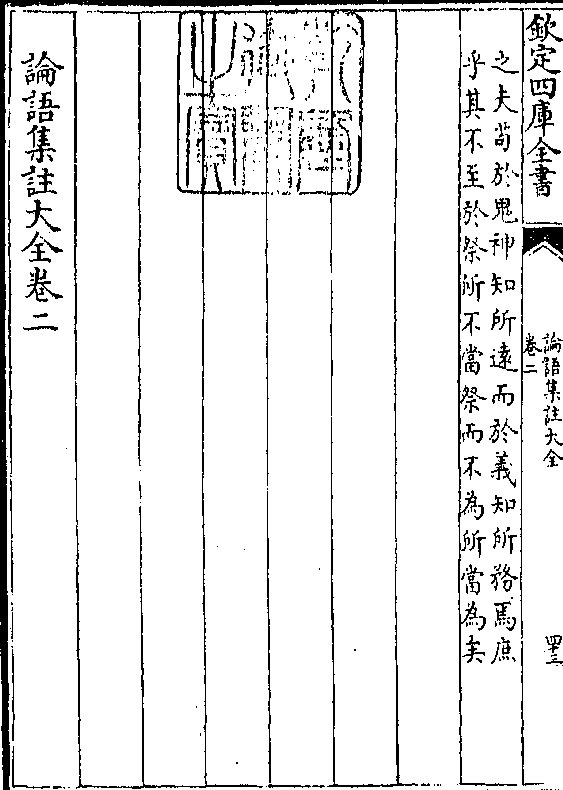 欽定四庫全書
論語集註大全
卷二
四十三
之夫苟於鬼神知所遠而於義知所務焉庶
乎其不至於祭所不當祭而不為所當為矣
論語集註大全卷二